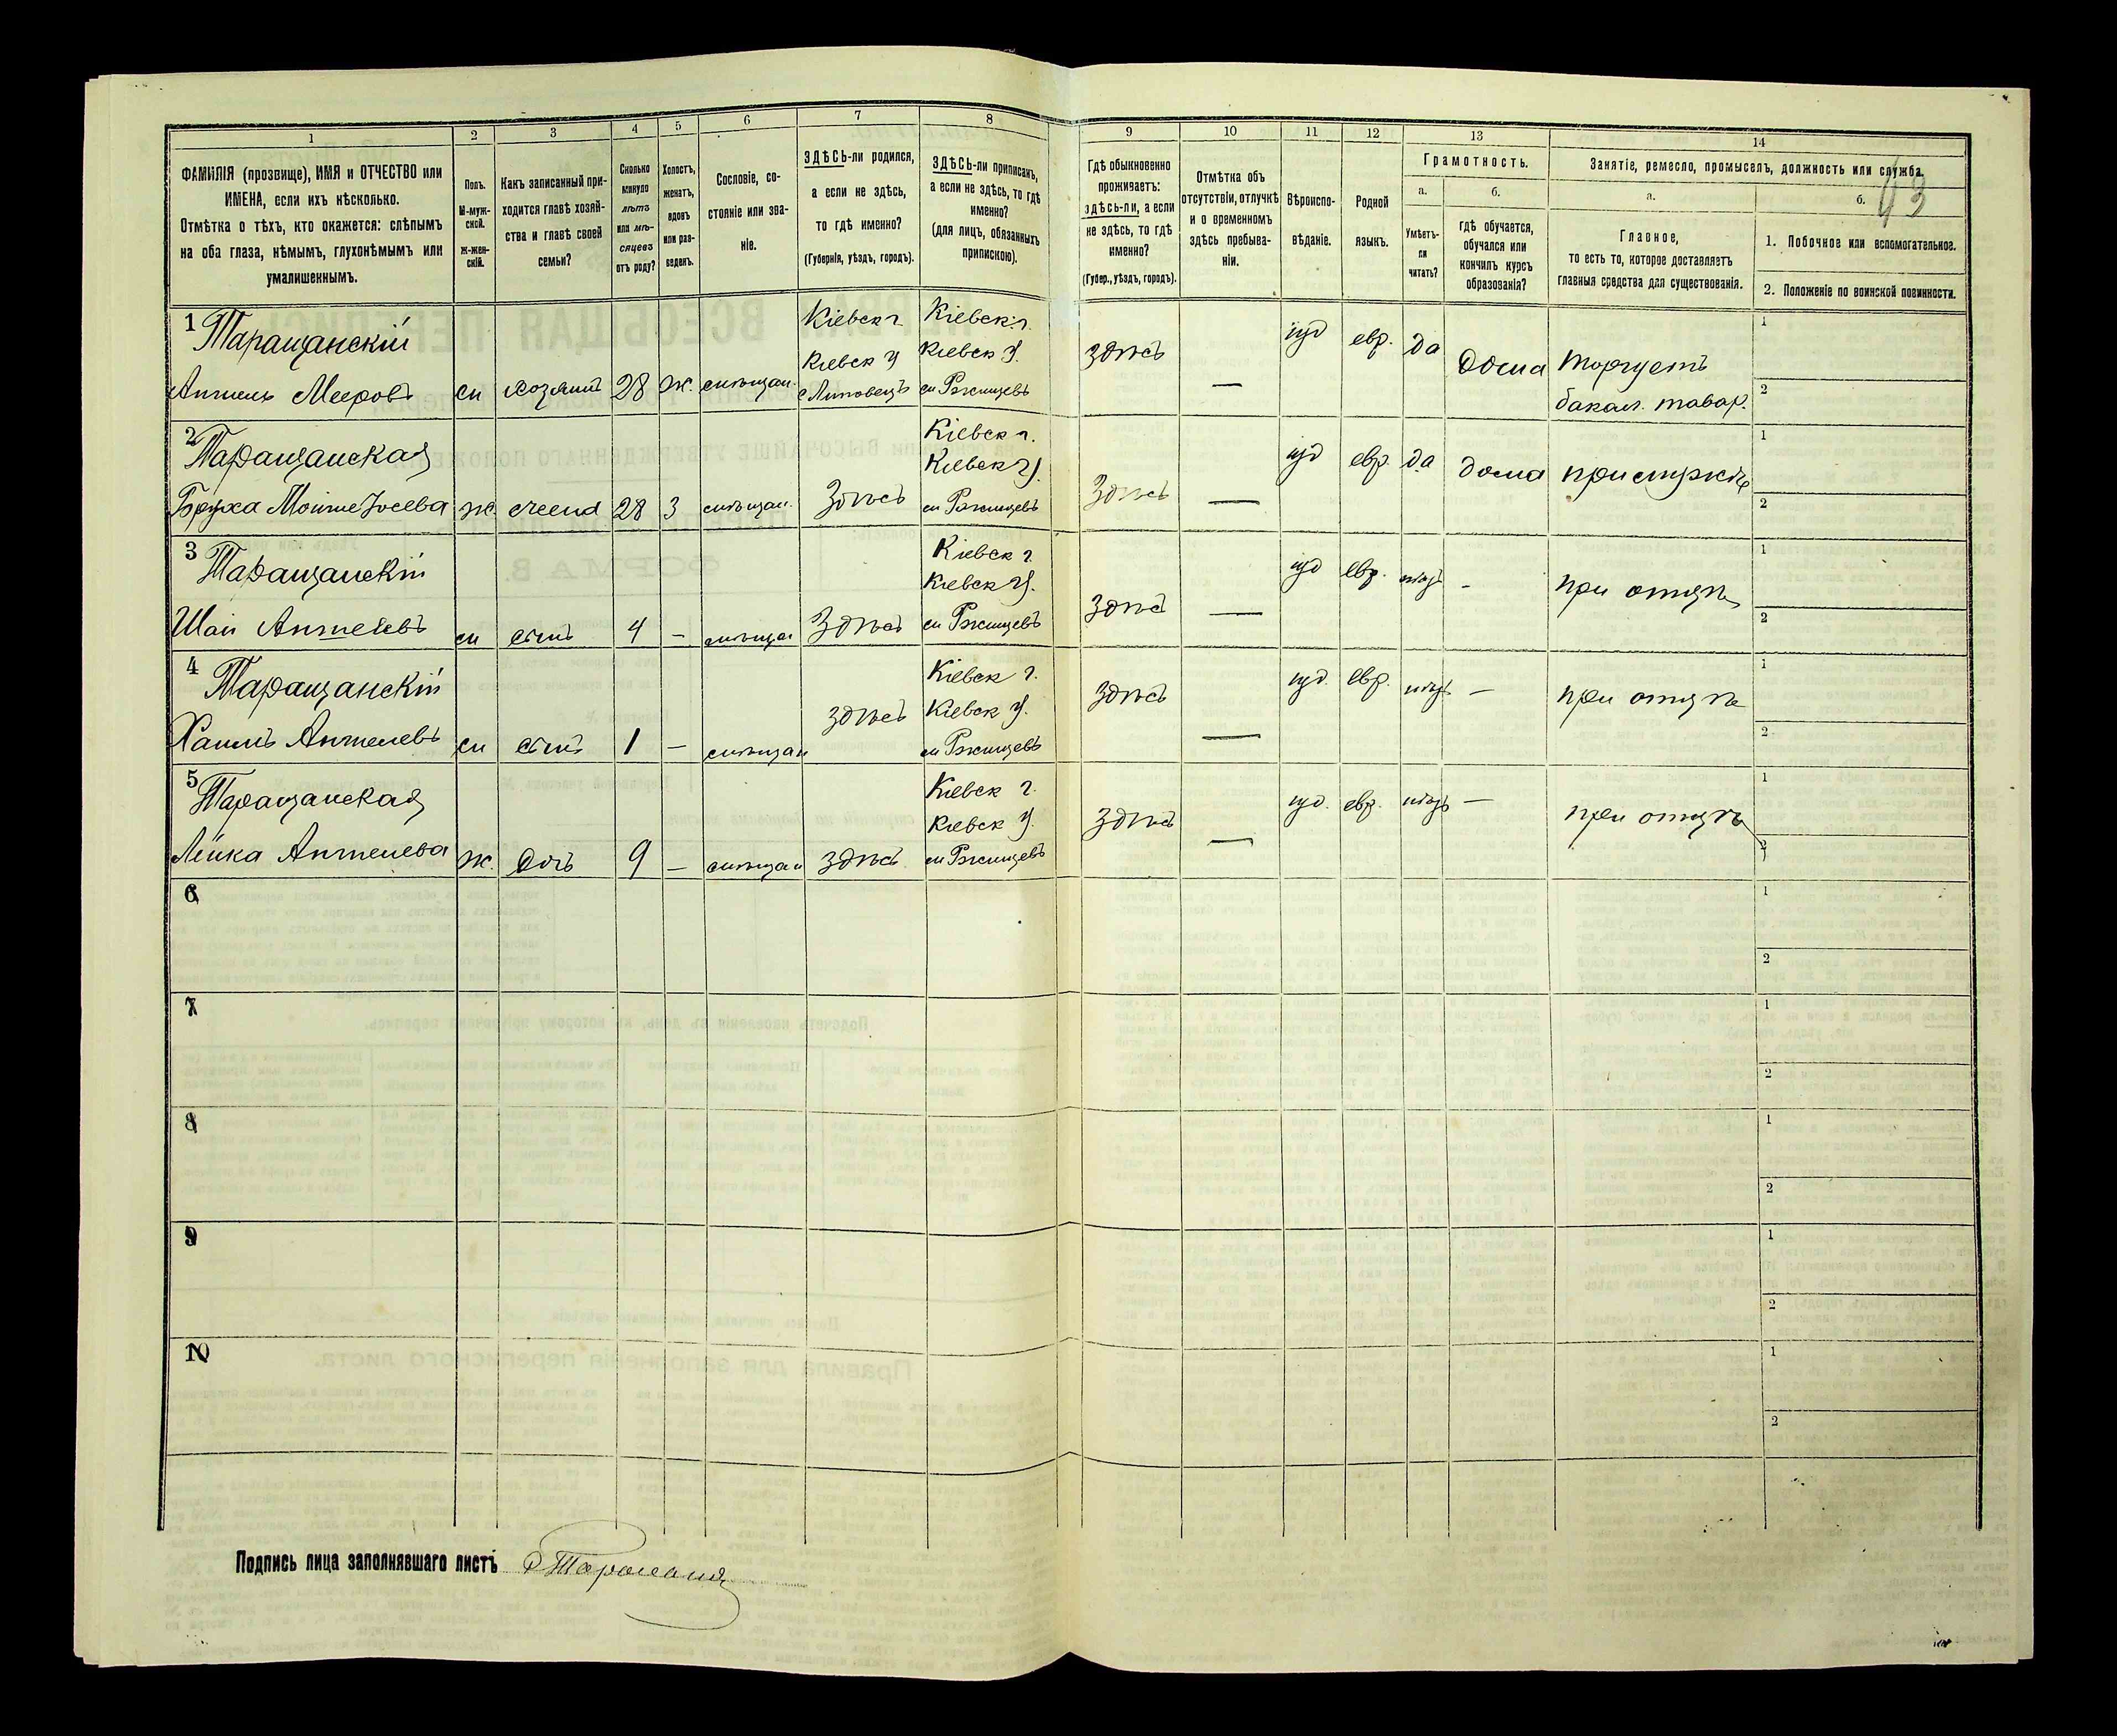 1 2 3 4 5 6 7 8 9 10 11 12 13 14
ФАМИЛІЯ (прозвище), ИМЯ и ОТЧЕСТВО или
ИМЕНА, если ихъ нѣсколько.
Отмѣтка о тѣхъ, кто окажется: слѣпымъ
на оба глаза, нѣмымъ, глухонѣмымъ или
умалишеннымъ.
Полъ.
М-муж-
ской.
Ж-жен-
скій.
Какъ записанный при-
ходится главѣ хозяй-
ства и главѣ своей
семьи?
Сколько
минуло
лѣтъ
или мѣ-
сяцевъ
отъ роду?
Холостъ,
женатъ,
вдовъ
или раз-
веденъ.
Сословіе, со-
стояніе или зва-
ніе.
ЗДѢСЬ-ли родился,
а если не здѣсь,
то гдѣ именно?
(Губернія, уѣздъ, городъ).
ЗДѢСЬ-ли приписанъ,
а если не здѣсь, то гдѣ
именно?
(для лицъ, обязанныхъ
припискою).
Гдѣ обыкновенно
проживаетъ:
здѣсь-ли, а если
не здѣсь, то гдѣ
именно?
(Губер., уѣздъ, городъ).
Отмѣтка объ
отсутствіи, отлучкѣ
и о временномъ
здѣсь пребыва-
ніи.
Вѣроиспо-
вѣданіе.
Родной
языкъ.
Грамотность.
а.
Умѣетъ-
ли
читать?
б.
гдѣ обучается,
обучался или
кончилъ курсъ
образованія?
Занятіе, ремесло, промыселъ, должность или служба.
43
а.
Главное,
то есть то, которое доставляетъ
главныя средства для существованія.
б.
1. Побочное или вспомогательное.
2. Положеніе по воинской повинности.
1 Таращанскій Кіевск г. Кіевск. г.
Кіевск У Кіевск У. здѣсь — іуд евр. да дома торгуетъ 1
Мееровъ м хозяинъ 28 ж. мѣщан. м Ржищевъ бакал. товар. 2
2 Таращанская Кіевск г.
Кіевск У. іуд евр. да дома 1
Бруха Мошко Іосева ж. жена 28 З мѣщан. Здѣсь м Ржищевъ Здѣсь — 2
3 Таращанскій Кіевск г.
Кіевск У. іуд евр. — при отцѣ 1
м сынъ 4 — мѣщан Здѣсь м Ржищевъ Здѣсь — 2
4 Таращанскій Кіевск г.
здѣсь Кіевск У. здѣсь іуд. евр. — при отцѣ 1
м сынъ 1 — мѣщан м Ржищевъ — 2
5 Таращанская Кіевск г.
Кіевск У. здѣсь іуд. евр. — при отцѣ 1
Лейка ж. дочь 9 — мѣщан здѣсь м Ржищевъ — 2
6 1
2
7 1
2
8 1
2
9 1
2
10 1
2
Подпись лица заполнявшаго листъ